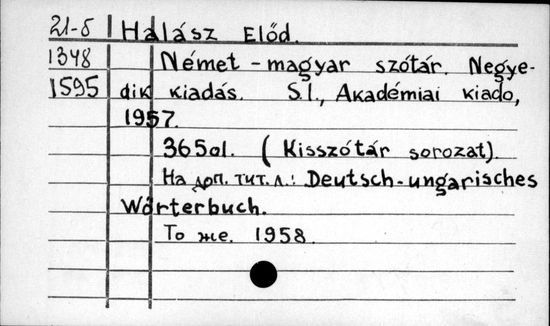 21-5 Halász Előd.
1348 Német-magyar szótár. Negye-
1595 dik kiadás. S.l., Akadémiai kiado,
1957.
365ol. (Kisszótár sorozat).
На доп. тит. л.: Deutsch-ungarisches
Wörterbuch.
То же. 1958.